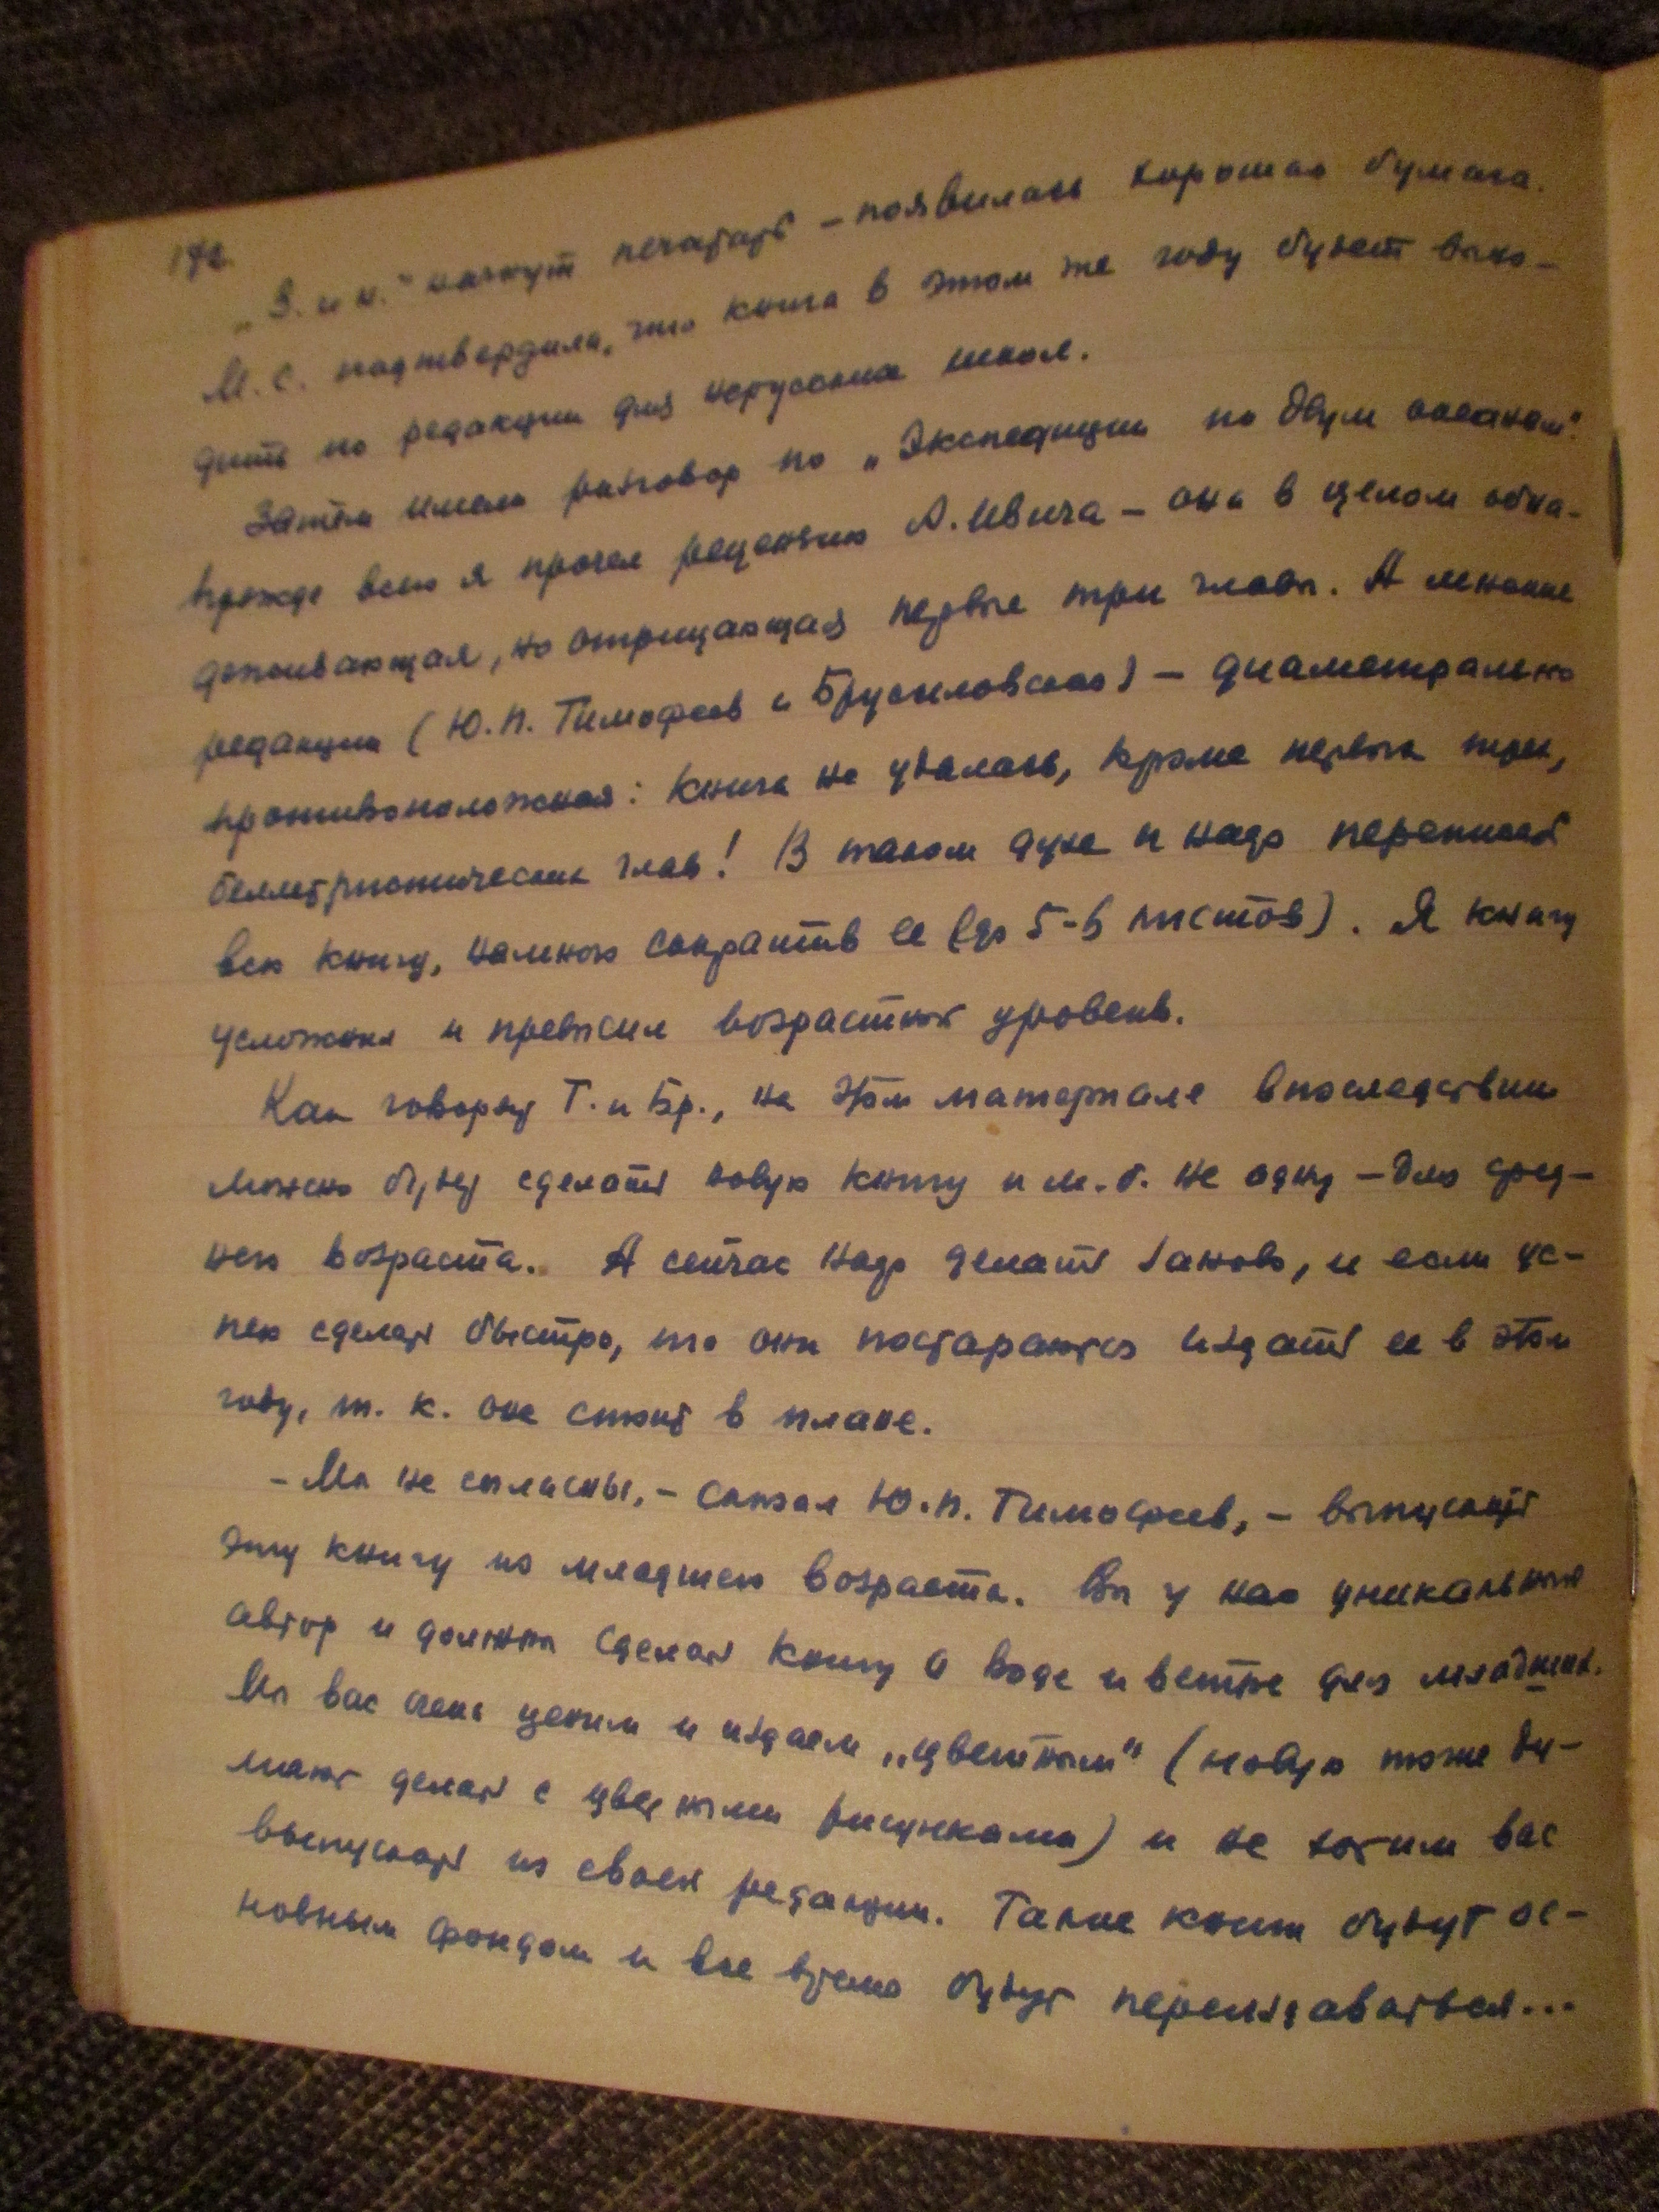 „З. и Н." начнут печатать – появилась хорошая бумага.
М. С. подтвердила, что книга в этом же году будет выхо-
дить по редакции для нерусских школ.
Затем имели разговор по „Экспедиции по двум океанам".
Прежде всего я прочел рецензию А. Ивича – она в целом обна-
деживающая, но отрицающая первые три главы. А мнение
редакции (Ю. П. Тимофеев и Брусиловского) – диаметрально
противоположная: книга не удалась, кроме первых трех,
беллетристических глав! В таком духе и надо переписать
всю книгу, намного сократив ее (до 5-6 листов). Я книгу
усложнил и превысил возрастной уровень.
Как говорят Т. и Бр., на этом материале впоследствии
можно будет сделать новую книгу и м. б. не одну – для сред-
него возраста. А сейчас надо делать заново, и если ус-
пею сделать быстро, то они постараются издать ее в этом
году, т. к. она стоит в плане.
– Мы не согласны, – сказал Ю. П. Тимофеев, – выпускать
эту книгу из младшего возраста. Вы у нас уникальный
автор и должны сделать книгу о воде и ветре для младших.
Мы вас очень ценим и издаем „цветным" (новую тоже ду-
мают делать с цветными рисунками) и не хотим вас
выпускать из своей редакции. Такие книги будут ос-
новным фондом и все время будут переиздаваться...